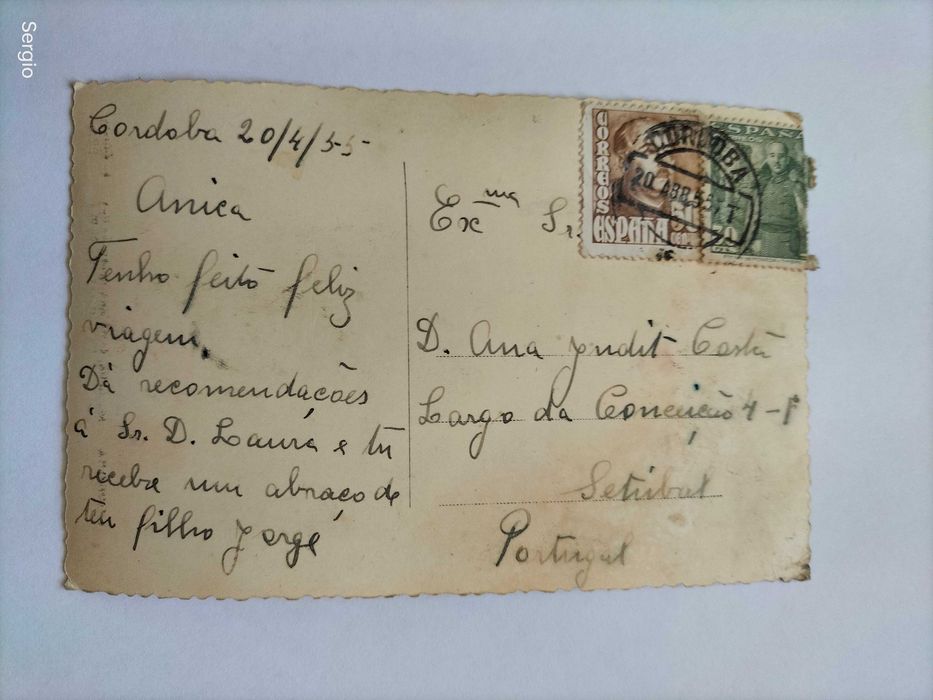 Sergio
Cordoba 20/4/55
Anica
Tenho feito feliz
viagem.
Dá recomendações
á Sr. D. Laura e tu
recebe um abraço de
teu filho Jorge
Ex.ma Sr.
D. Ana Judit Costa
Largo da Conceição 4-1º
Setúbal
Portugal
CORREOS
ESPAÑA
ESPAÑA
CORDOBA
20 ABR.55